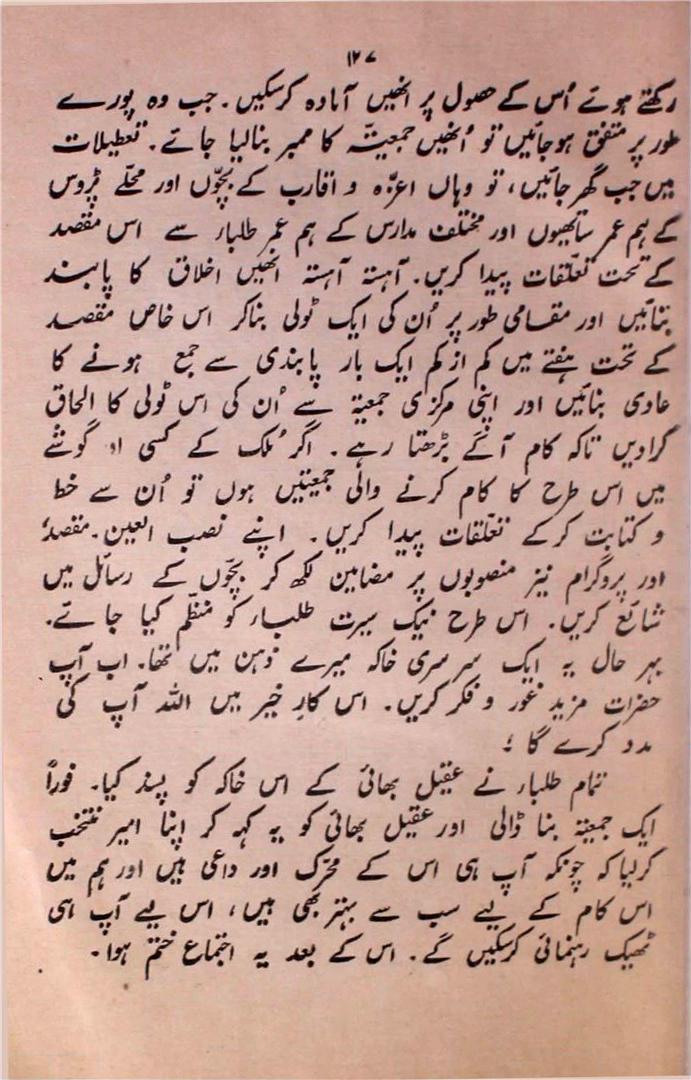 ۱۲۷
رکھتے ہوئے اُس کے حصول پر انھیں آمادہ کرسکیں۔ جب وہ پورے
طور پر متفق ہوجائیں تو اُنھیں جمعیتہ کا ممبر بنالیا جائے۔ تعطیلات
میں جب گھر جائیں، تو وہاں اعزّہ و اقارب کے بچّوں اور محلّے پڑوس
کے ہم عمر ساتھیوں اور مختلف مدارس کے ہم عمر طلباء سے اس مقصد
کے تحت تعلّقات پیدا کریں۔ آہستہ آہستہ انھیں اخلاق کا پابند
بنائیں اور مقامی طور پر اُن کی ایک ٹولی بناکر اس خاص مقصد
کے تحت ہفتے میں کم ازکم ایک بار پابندی سے جمع ہونے کا
عادی بنائیں اور اپنی مرکزی جمعیۃ سے اُن کی اس ٹولی کا الحاق
کرادیں تاکہ کام آگے بڑھتا رہے۔ اگر مُلک کے کسی اور گوشے
میں اس طرح کا کام کرنے والی جمعیتیں ہوں تو اُن سے خط
و کتابت کرکے تعلّقات پیدا کریں۔ اپنے نصب العین۔ مقصد
اور پروگرام نیز منصوبوں پر مضامین لکھ کر بچّوں کے رسائل میں
شائع کریں۔ اس طرح نیک سیرت طلباء کو منظّم کیا جائے۔
بہر حال یہ ایک سرسری خاکہ میرے ذہن میں تھا۔ اب آپ
حضرات مزید غور و فکر کریں۔ اس کارِ خیر میں اللہ آپ کی
مدد کرے گا؛
تمام طلباء نے عقیل بھائی کے اس خاکہ کو پسند کیا۔ فوراً
ایک جمعیۃ بنا ڈالی اور عقیل بھائی کو یہ کہہ کر اپنا امیر منتخب
کرلیا کہ چونکہ آپ ہی اس کے محرّک اور داعی ہیں اور ہم میں
اس کام کے لیے سب سے بہتر بھی ہیں، اس لیے آپ ہی
ٹھیک رہنمائی کرسکیں گے۔ اس کے بعد یہ اجتماع ختم ہوا۔